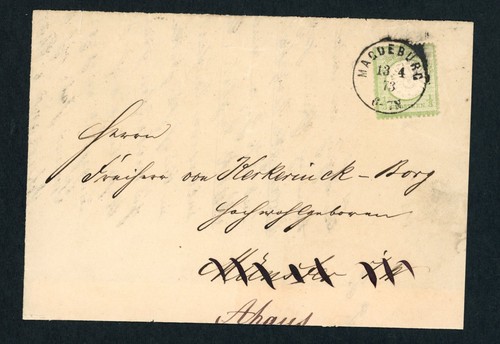 MAGDEBURG
13 4
73
6-7N
Herrn
Freiherr von Kerkerinck-Borg
Hochwohlgeboren
Münster
Ahaus